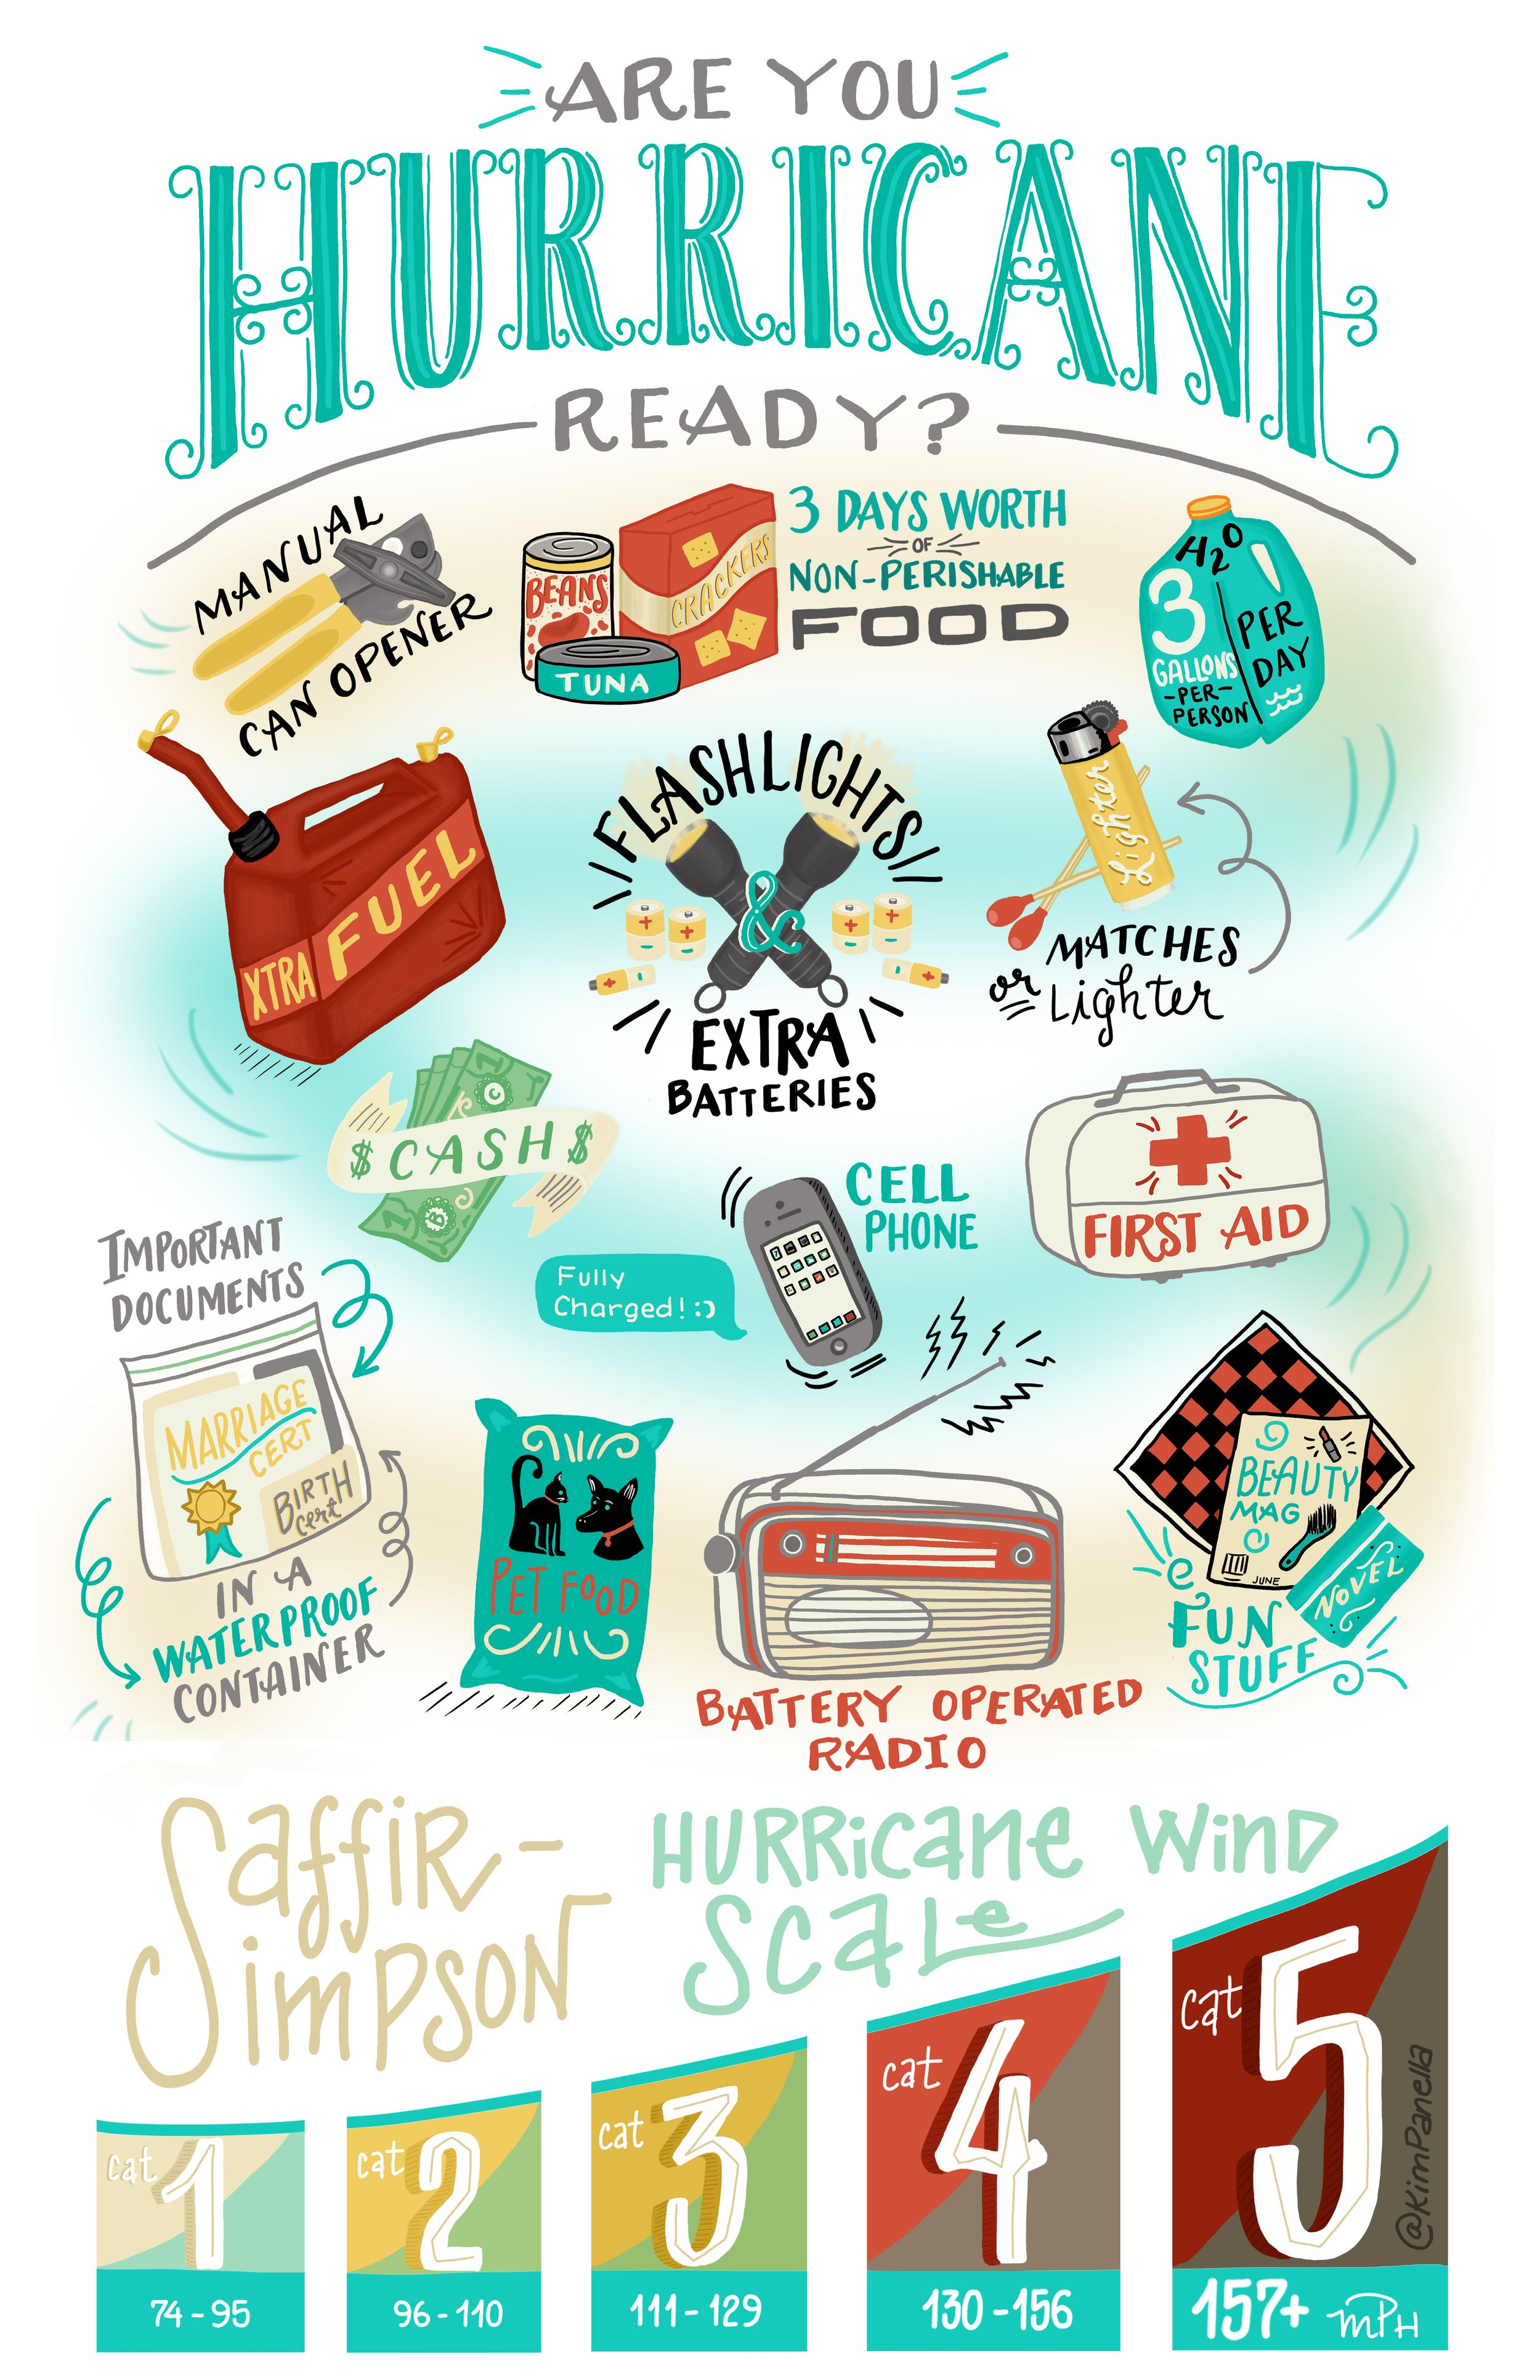 ARE YOU
HURRICANE
READY?
MANUAL
CAN OPENER
BEANS
TUNA
CRACKERS
3 DAYS WORTH
OF
NON-PERISHABLE
FOOD
H2O
3
GALLONS
-PER-
PERSON
PER
DAY
XTRA FUEL
FLASHLIGHTS
&
EXTRA
BATTERIES
Lighter
MATCHES
or Lighter
$ CASH $
CELL
PHONE
Fully
Charged! :)
FIRST AID
IMPORTANT
DOCUMENTS
MARRIAGE
CERT
BIRTH
Cert
IN A
WATERPROOF
CONTAINER
PET FOOD
BATTERY OPERATED
RADIO
BEAUTY
MAG
JUNE
NOVEL
FUN
STUFF
Saffir-
Simpson
Hurricane Wind
Scale
cat 1
74 - 95
cat 2
96 - 110
cat 3
111 - 129
cat 4
130 - 156
cat 5
157+ MPH
@KimPanella